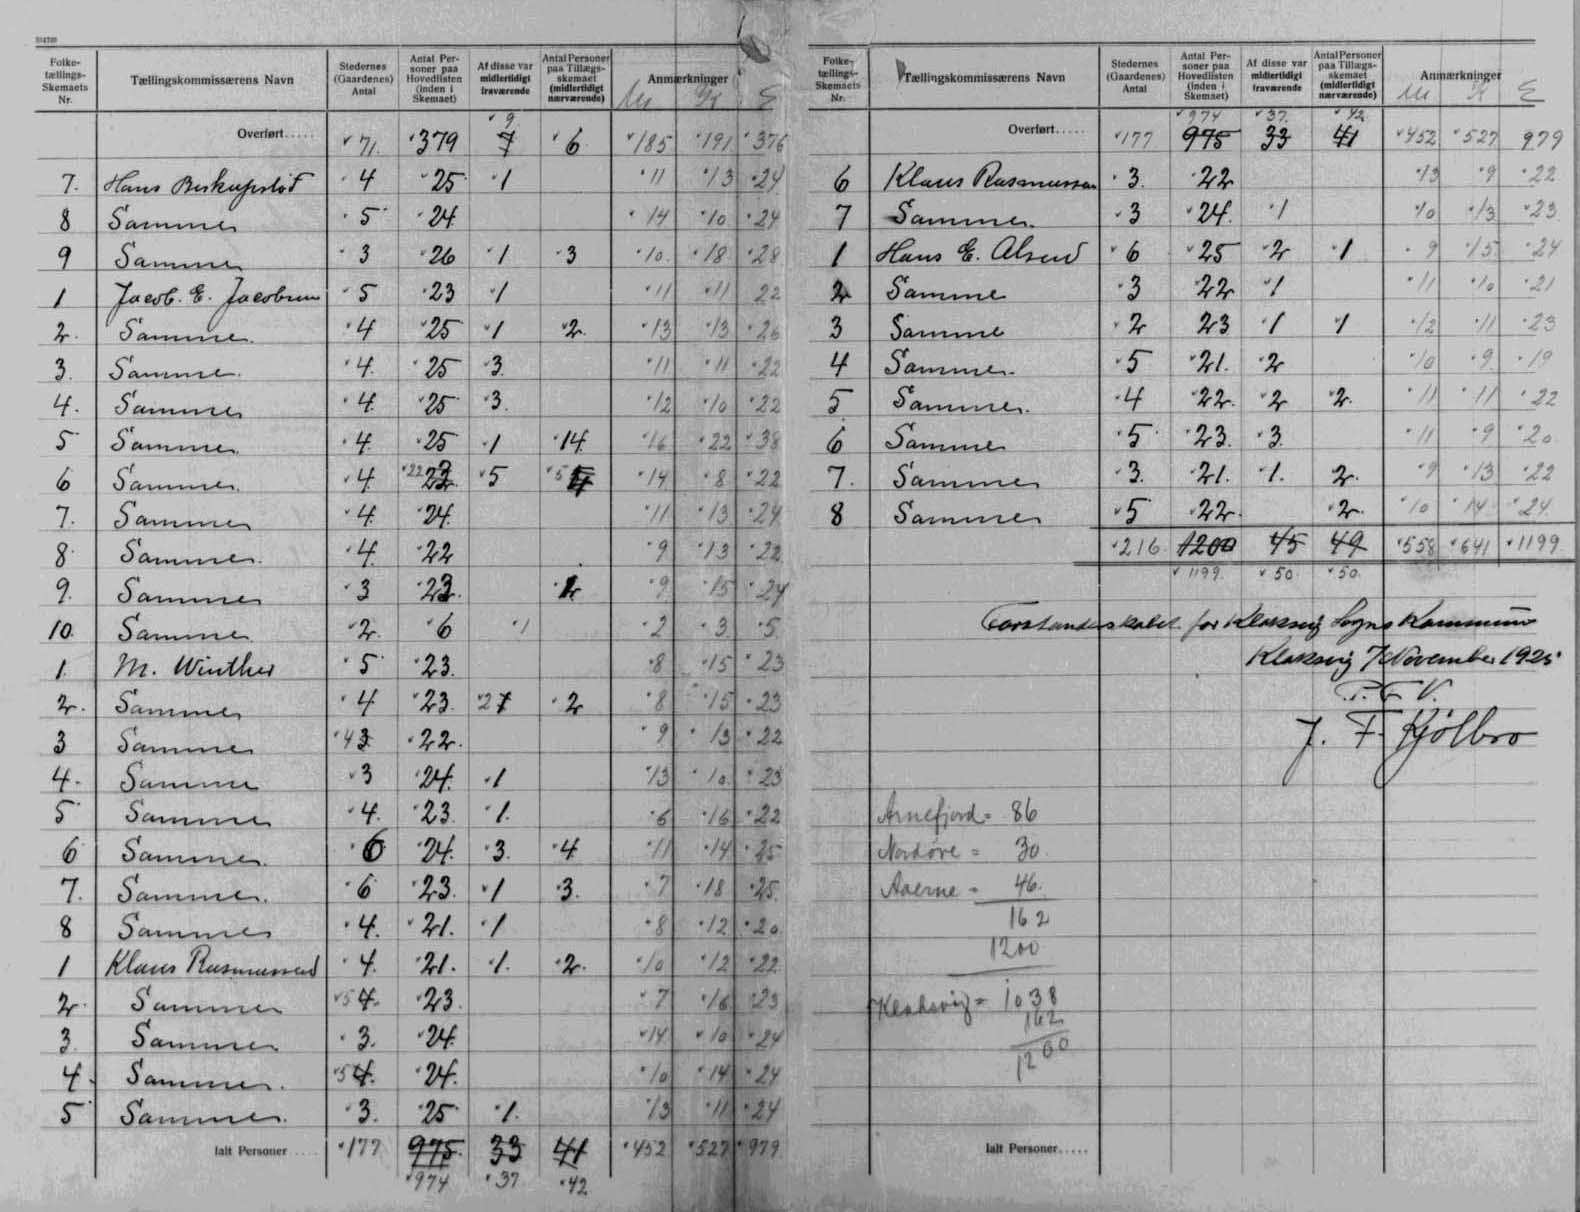 Folke-tællings-Skemaets Nr. | Tællingskommissærens Navn | Stedernes (Gaardenes) Antal | Antal Personer paa Hovedlisten (inden i Skemaet) | Af disse var midlertidigt fraværende | Antal Personer paa Tillægsskemaet (midlertidigt nærværende) | Anmærkninger M K S
Overført..... 71. 379 9 7 6 185 191 376
7. Hans 4 25 1 11 13 24
8 Samme 5 24 14 10 24
9 Samme 3 26 1 3 10 18 28
1 Jacob. E. Jacobsen 5 23 1 11 11 22
2. Samme. 4 25 1 2. 13 13 26
3. Samme. 4. 25 3. 11 11 22
4. Samme 4. 25 3. 12 10 22
5 Samme. 4. 25 1 14. 16 22 38
6 Samme. 4. 22 23. 5 5 14 8 22
7. Samme 4. 24. 11 13 24
8. Samme. 4. 22 9 13 22
9. Samme 3 23. 9 15 24
10. Samme. 2. 6 1 2 3 5
1. M. Winther 5 23. 8 15 23
2. Samme 4 23. 2 1 2 8 15 23
3 Samme 4 3 22. 9 13 22
4. Samme 3 24. 1 13 10 23
5 Samme 4. 23. 1. 6 16 22
6 Samme. 6 24. 3. 4 11 14 25
7. Samme. 6 23. 1 3. 7 18 25.
8 Samme 4. 21. 1 8 12 20
1 Klaus Rasmussen 4. 21. 1. 2. 10 12 22
2. Samme 5 4. 23. 7 16 23
3. Samme 3. 24. 14 10 24
4. Samme. 5 4. 24. 10 14 24
5 Samme. 3. 25 1. 13 11 24
Ialt Personer .... 177 975. 33 41 452 527 979
974 37 42
Folke-tællings-Skemaets Nr. | Tællingskommissærens Navn | Stedernes (Gaardenes) Antal | Antal Personer paa Hovedlisten (inden i Skemaet) | Af disse var midlertidigt fraværende | Antal Personer paa Tillægsskemaet (midlertidigt nærværende) | Anmærkninger M K S
974 37. 42.
Overført..... 177 975 33 41 452 527 979
6 Klaus Rasmussen 3. 22 13 9 22
7 Samme. 3 24. 1 10 13 23
1 Hans E. Olsen 6 25 2 1 9 15 24
2 Samme 3 22 1 11 10 21
3 Samme 2 23 1 1 12 11 23
4 Samme. 5 21. 2 10 9 19
5 Samme. 4 22. 2 2. 11 11 22
6 Samme 5 23. 3. 11 9 20
7. Samme 3. 21. 1. 2. 9 13 22
8 Samme 5 22. 2. 10 14 24
216 1200 45 49 558 641 1199
1199. 50. 50.
Forstanderskabet for Klaksvig Sogns Kommune
Klaksvig 7 November 1925
P. F. V.
J. F. Kjølbro
Arnefjord = 86
Nordøre = 30.
Aaerne = 46.
162
1200
Klaksvig = 1038
162
1200
Ialt Personer.....